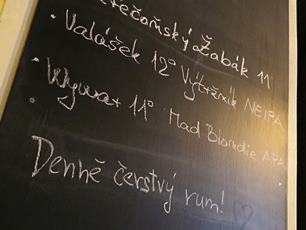 řečoňský Žabák 11
• Valášek 12° Výčržník NEIPA
• Wywar 11° Mad Blondie APA
Denně čerstvý rum! ♡